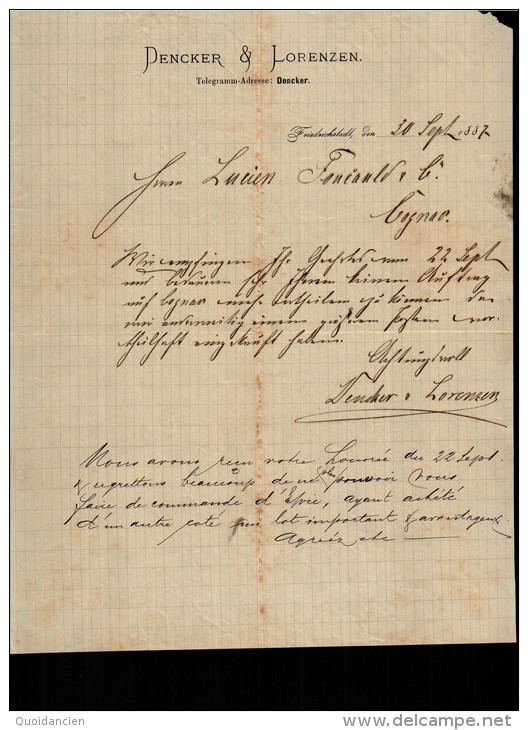 DENCKER & LORENZEN.
Telegramm-Adresse: Dencker.
Friedrichstadt, den 30 Sept 1887
Herrn Lucien Foucauld & Co.
Cognac.
Wir empfingen Ihr Geehrtes vom 22 Sept
und bedauern sehr Ihnen keinen Auftrag
auf Cognac mehr ertheilen zu können da
wir anderweitig einen größeren Posten vor-
theilhaft eingekauft haben.
Achtungsvoll
Dencker & Lorenzen
Nous avons reçu votre honorée du 22 Sept.
& regrettons beaucoup de ne plus pouvoir vous
faire de commande d'Epie, ayant acheté
d'un autre coté un lot important & avantageux.
Agréez etc
Quoidancien
www.delcampe.net